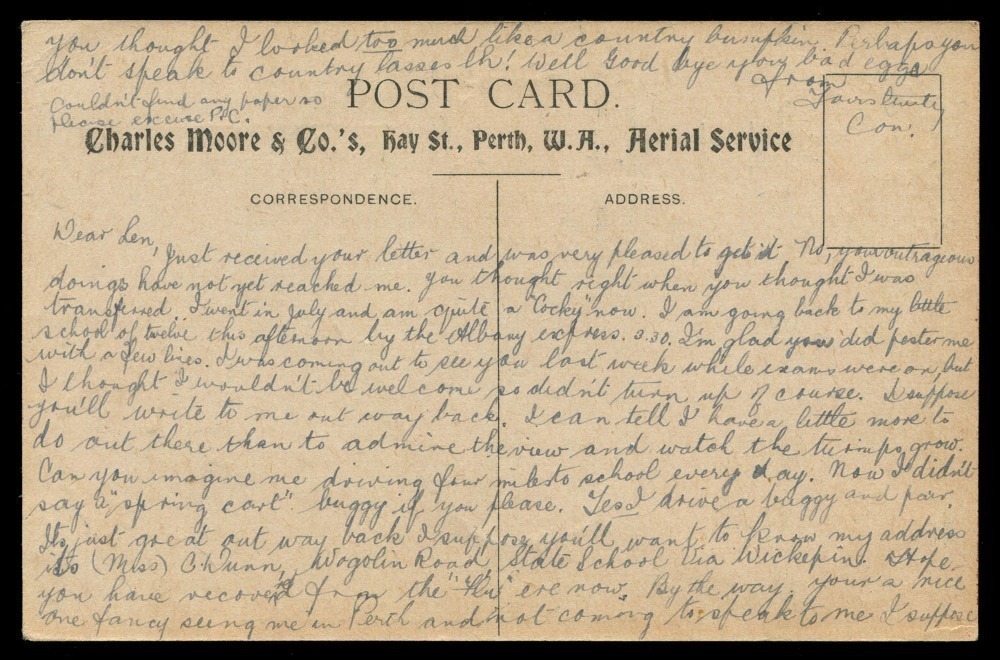 you thought I looked too much like a country bumpkin. Perhaps you
don't speak to country lasses Eh! Well Good bye your bad egg
from
Couldn't find any paper so
please excuse P.C.
Con.
POST CARD.
Charles Moore & Co.'s, Hay St., Perth, W.A., Aerial Service
CORRESPONDENCE.
ADDRESS.
Dear Len,
Just received your letter and was very pleased to get it No, your outrageous
doings have not yet reached me. You thought right when you thought I was
transferred. I went in July and am quite a "Cocky" now. I am going back to my little
school of twelve this afternoon by the Albany express. 3.30. I'm glad you did pester me
with a few lines. I was coming out to see you last week while exams were on, but
I thought I wouldn't be welcome so didn't turn up of course. I suppose
you'll write to me out way back. I can tell I have a little more to
do out there than to admire the view and watch the turnips grow.
Can you imagine me driving four miles to school every day. Now I didn't
say a "spring cart" buggy if you please. Yes I drive a buggy and pair.
Its just great out way back I suppose you'll want to know my address
its (Miss) C. Nunn, Wogolin Road, State School Via Wickepin. Hope
you have recovered from the "flu" ere now. By the way your a nice
one fancy seeing me in Perth and not coming to speak to me I suppose